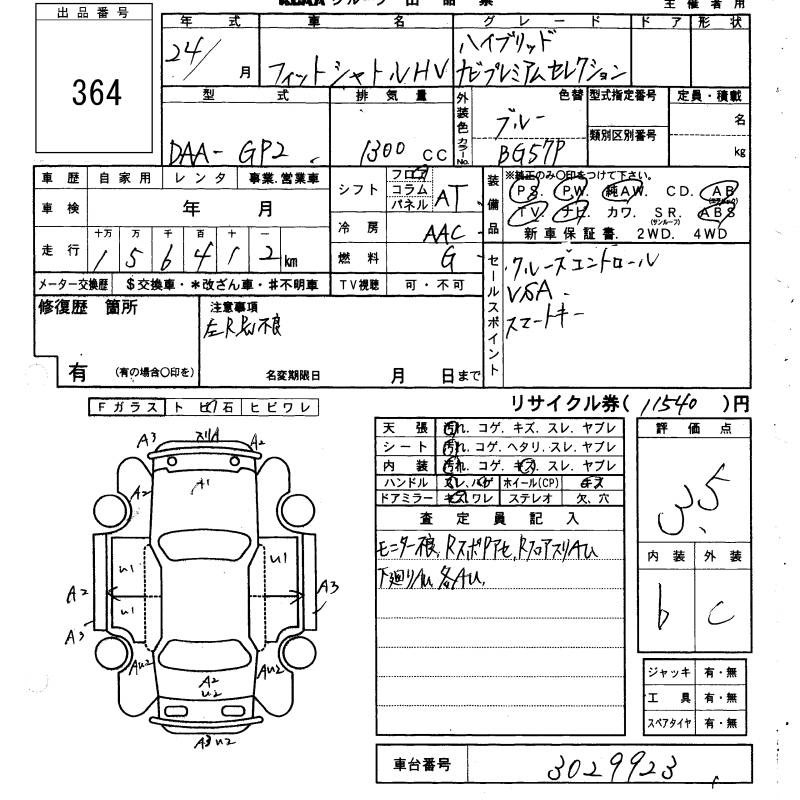 KCAA グループ 出 品 票
主 催 者 用
出 品 番 号
364
年 式 車 名 グ レ ー ド ド ア 形 状
24/ 月 フィットシャトルHV ハイブリッド
ナビプレミアムセレクション
型 式 排 気 量 外装色 カラーNo. 色替 型式指定番号 定員・積載
DAA-GP2 1300 CC ブルー 類別区別番号 名
BG57P kg
車 歴 自 家 用 レ ン タ 事業.営業車
シフト フロア コラム パネル AT
装備品 ※純正のみ〇印をつけて下さい。
PS. PW. 純AW. CD. AB
TV. ナビ カワ. SR. ABS
(サンルーフ)
新 車 保 証 書. 2WD. 4WD
車 検 年 月
冷 房 AAC
走 行 十万 万 千 百 十 一
1 5 6 4 1 2 km
燃 料 G
メーター交換歴 $交換車・*改ざん車・#不明車 TV視聴 可 ・ 不 可
セールスポイント
クルーズコントロール
VSA
スマートキー
修復歴 箇所
有 (有の場合〇印を)
注意事項
名変期限日 月 日まで
リサイクル券( 11540 )円
Fガラス ト ビ 石 ヒ ビ ワ レ
天 張 汚れ. コゲ. キズ. スレ. ヤブレ
シ ー ト 汚れ. コゲ. ヘタリ. スレ. ヤブレ
内 装 汚れ. コゲ. キズ. スレ. ヤブレ
ハンドル スレ. ハゲ ホイール(CP) キズ
ドアミラー キズワレ ステレオ 欠、穴
評 価 点
3.5
内 装 外 装
b c
査 定 員 記 入
A3 スリA A2
A1
A2
U1 U1
U1
A2 A3
A3
AU2 AU2
A2
U2
A3U2
ジャッキ 有・無
工 具 有・無
スペアタイヤ 有・無
車台番号 3029923